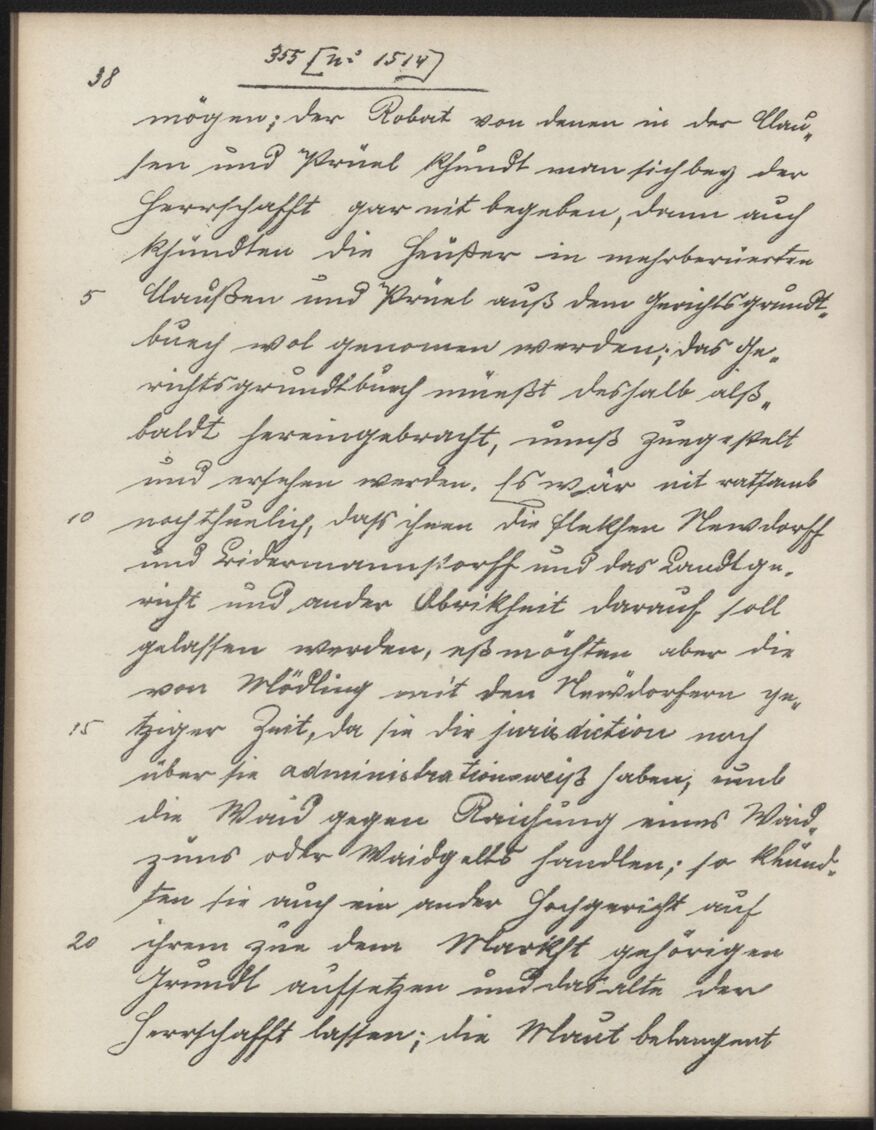 38
355 [nº 1514]
mögen; der Robat von denen in der Clau„
sen und Prüel khundt man sich bey der
Herrschafft gar nit begeben, dann auch
khündten die Heußer in mehrberüerten
5 Claußen und Prüel auß dem Gerichtsgrundt„
buech wol genomen werden; das Ge„
richtsgrundtbuech müeßt deshalb alß„
baldt hereingebracht, unnß zuegestelt
und ersehen werden. Es wär nit ratsamb
10 noch thuelich, dass ihnen die flekhen Newdorff
und Bidermannstorff und das Landtge„
richt und ander Obrikheit darauf soll
gelassen werden, eß möchten aber die
von Mödling mit den Newdorfern ye„
15 tziger Zeit, da sie die jurisdiction noch
über sie administrationsweiß haben, umb
die Waid gegen Raichung eines Waid„
zinns oder Waidgelts handlen; so khünd„
ten sie auch ein ander Hochgericht auf
20 ihrem zue dem Markht gehörigen
Grundt aufsetzen und das alte der
Herrschafft lassen; die Maut belangent